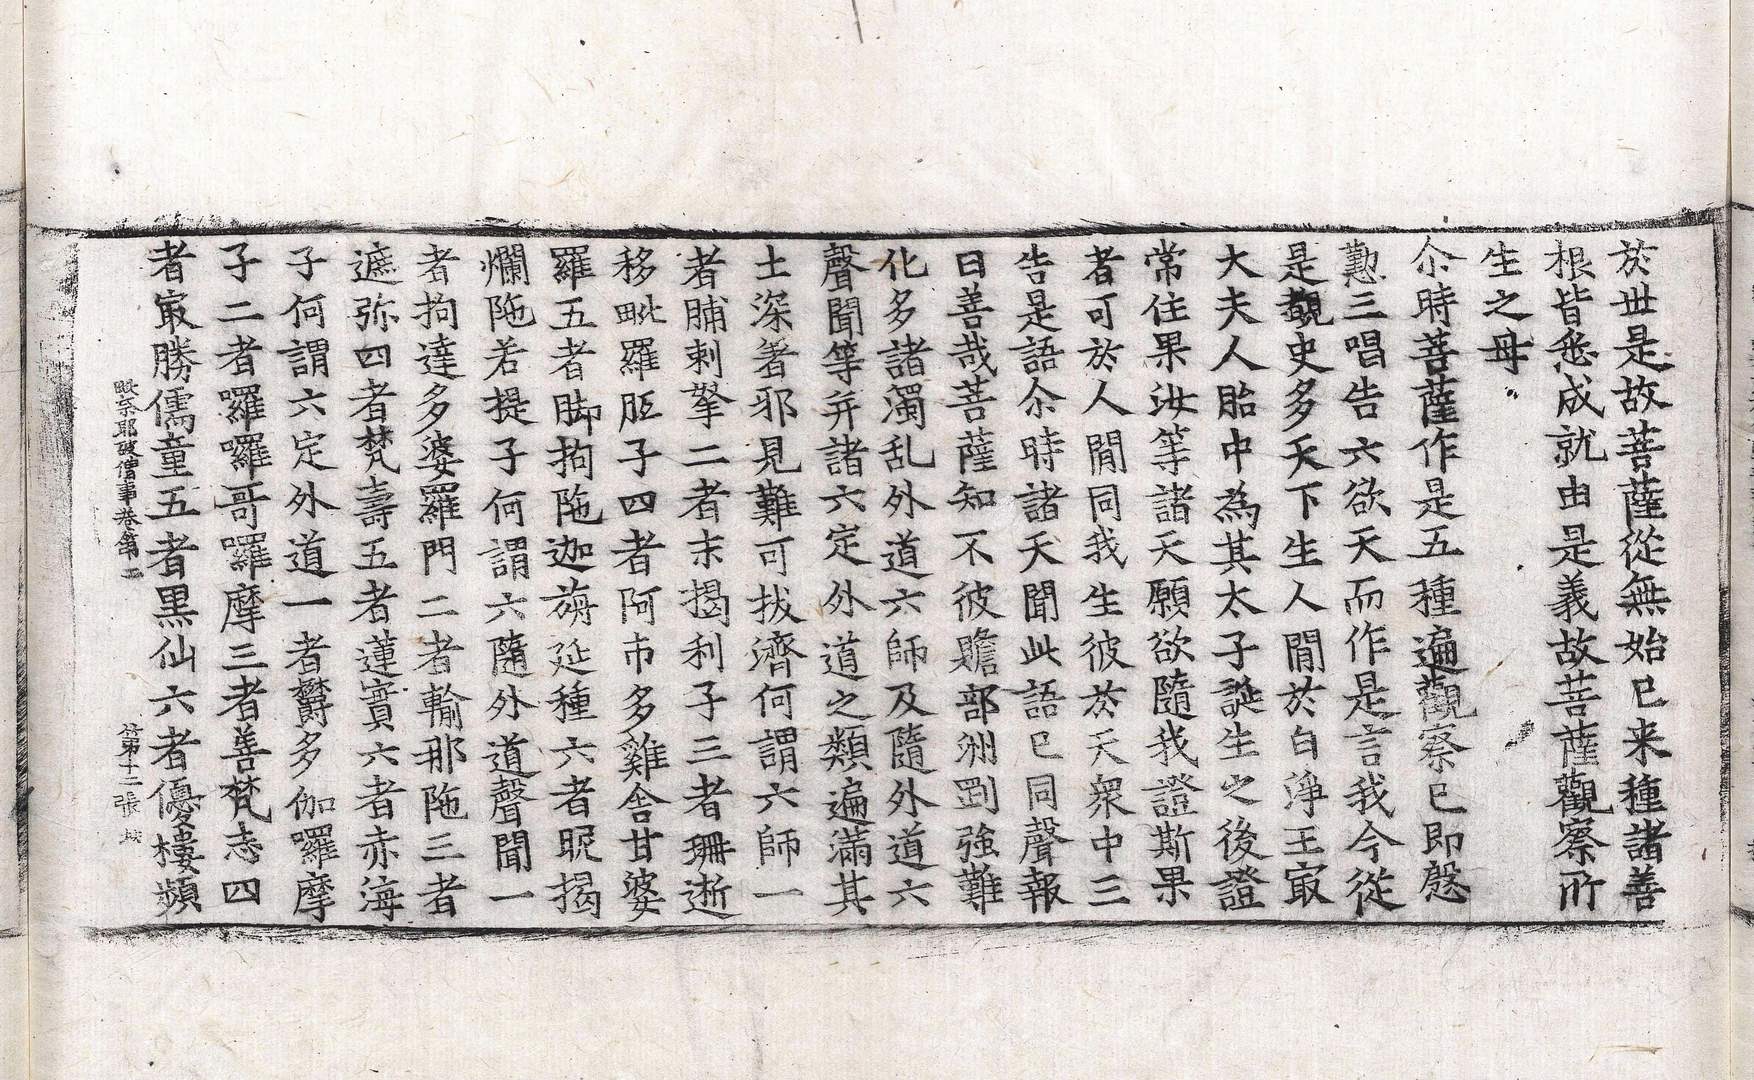 於世是故菩薩從無始已来種諸善
根皆悉成就由是義故菩薩觀察所
生之母
尒時菩薩作是五種遍觀察已即慇
懃三唱告六欲天而作是言我今從
是覩史多天下生人間於白淨王㝡
大夫人胎中為其太子誕生之後證
常住果汝等諸天願欲隨我證斯果
者可於人間同我生彼於天衆中三
告是語尒時諸天聞此語已同聲報
曰善哉菩薩知不彼贍部洲剛強難
化多諸濁乱外道六師及隨外道六
聲聞等并諸六定外道之類遍滿其
土深著邪見難可拔濟何謂六師一
者脯剌拏二者末揭利子三者珊逝
移毗羅胝子四者阿市多雞舍甘婆
羅五者脚拘陁迦旃延種六者昵揭
爛陁若提子何謂六隨外道聲聞一
者拘達多婆羅門二者輸那陁三者
遮弥四者梵壽五者蓮實六者赤海
子何謂六定外道一者欝多伽囉摩
子二者囉囉哥囉摩三者善梵志四
者㝡勝儒童五者黒仙六者優樓頻
毗奈耶破僧事卷第二
第十二張